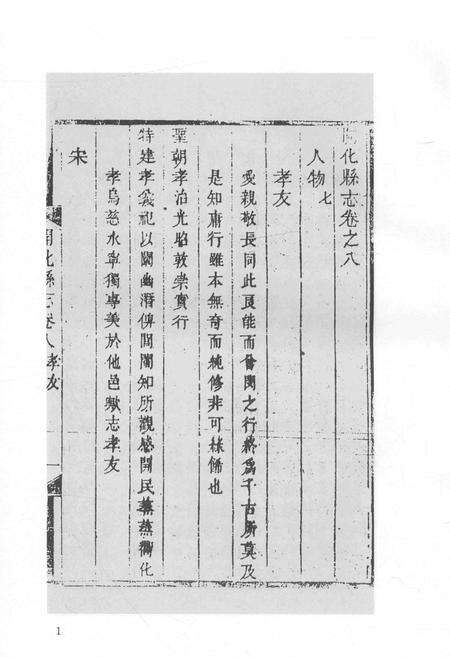 開化縣志卷之八
人物七
孝友
愛親敬長同此良能而曾閔之行終為千古所莫及
是知庸行雖本無奇而純修非可矯飾也
聖朝孝治光昭敦崇實行
特建孝義祀以闡幽潛俾閭閻知所觀感開民蒸蒸嚮化
孝烏慈水寧獨專美於他邑歟志孝友
宋
開化縣志卷八 孝友 一
1